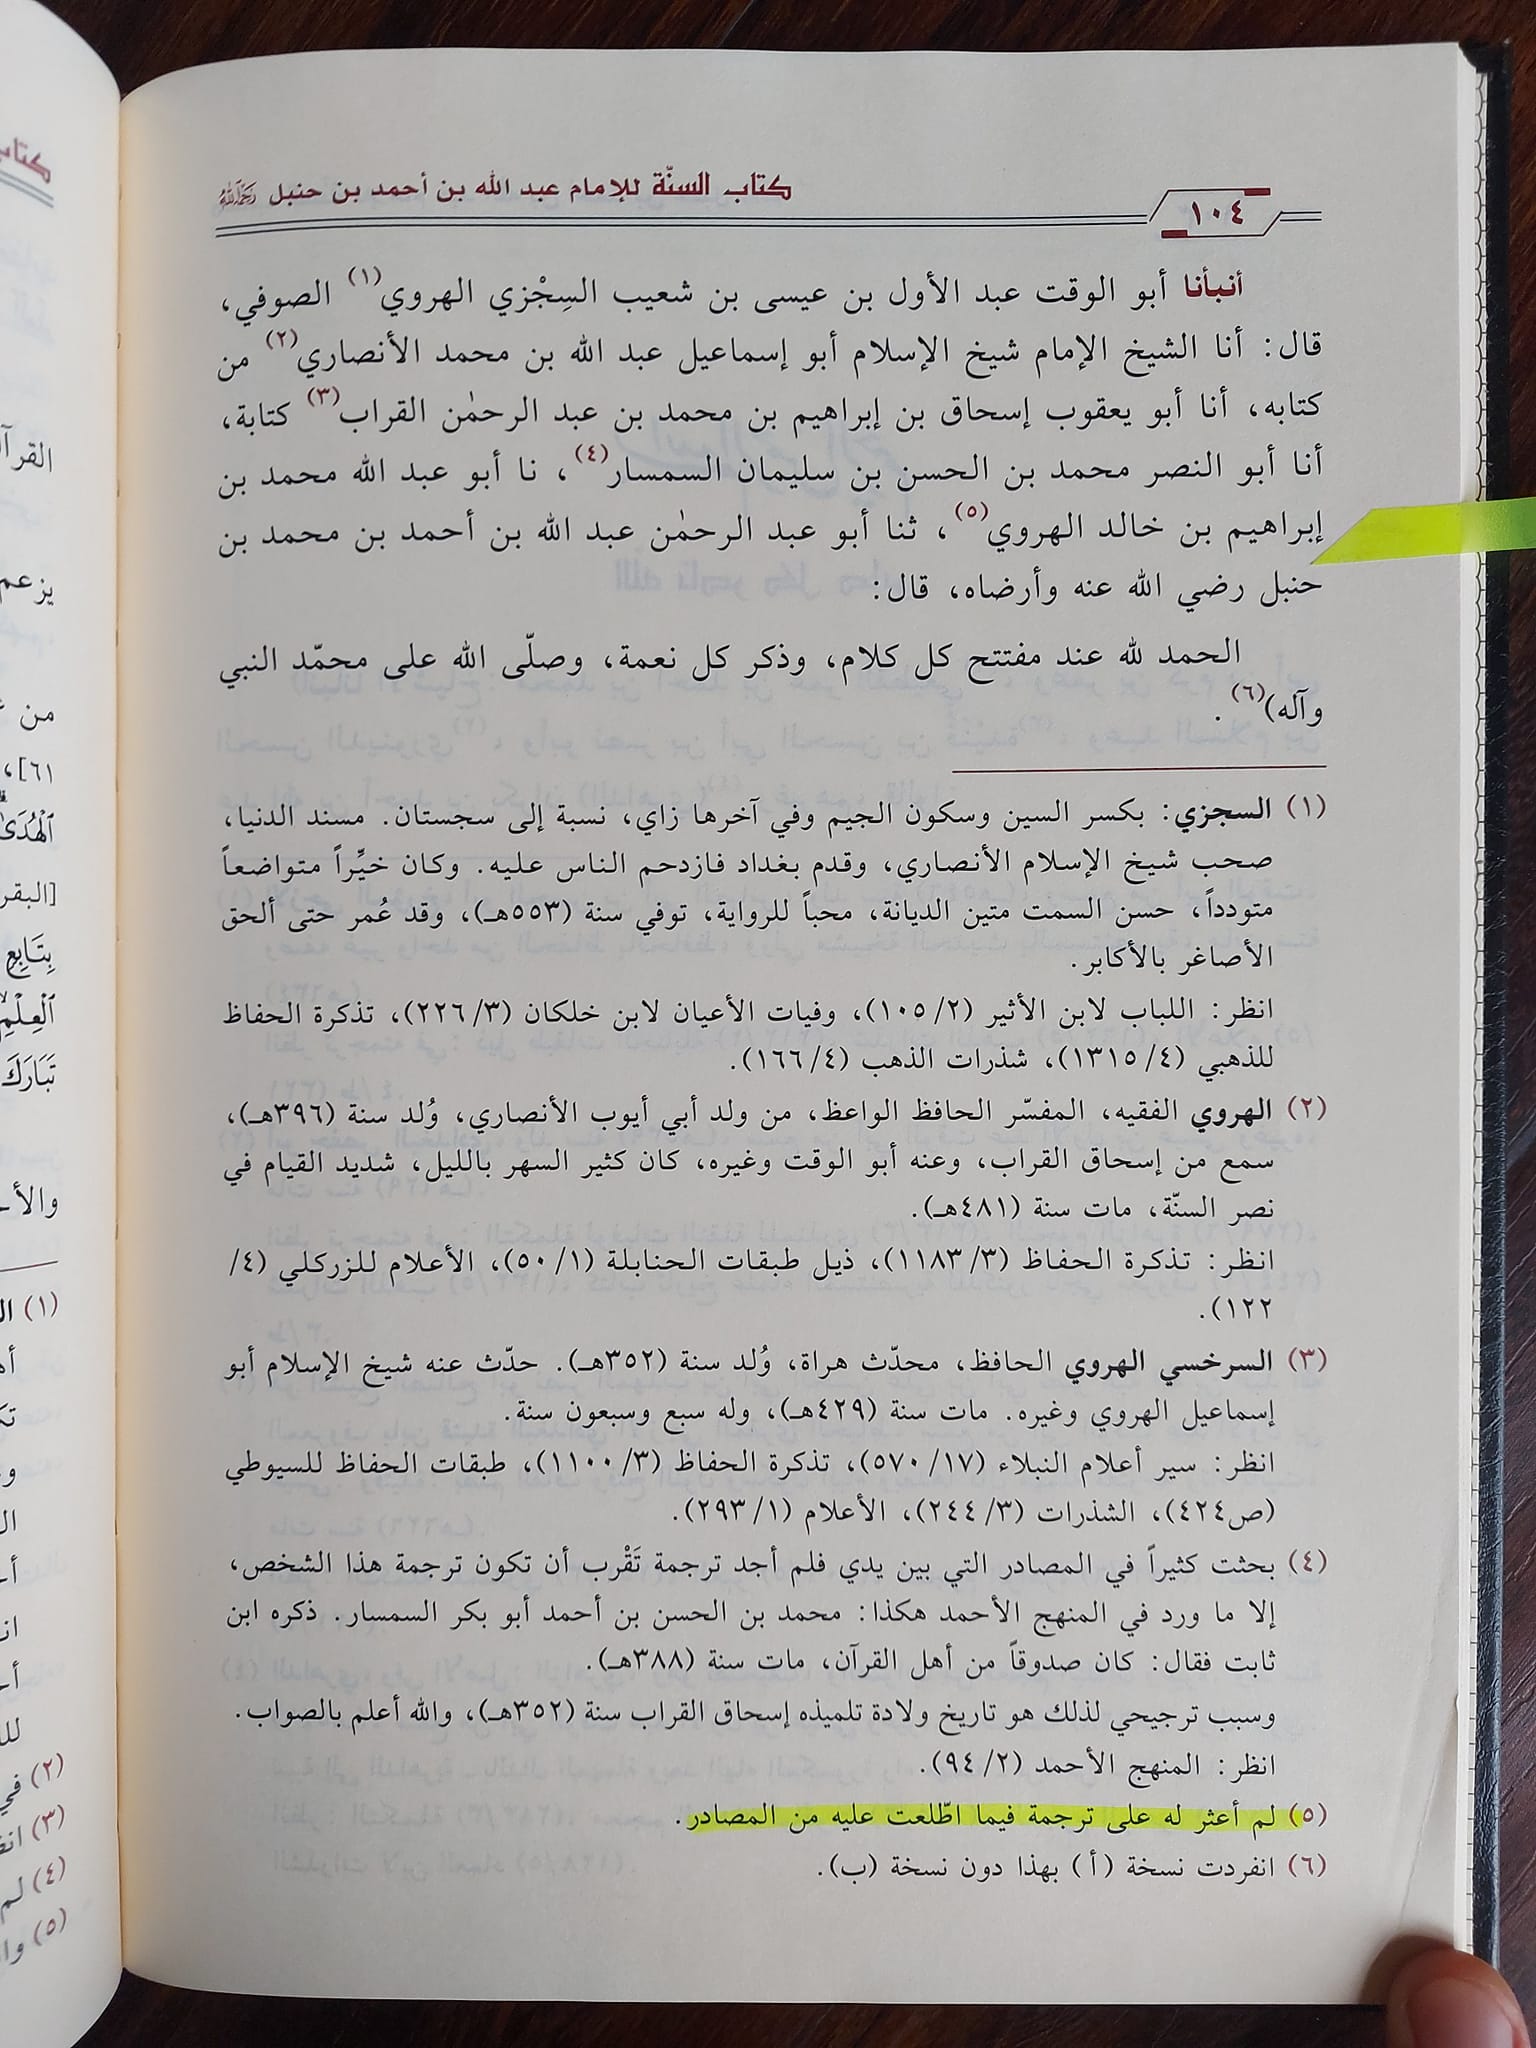 كتاب السنّة للإمام عبد الله بن أحمد بن حنبل رَحِمَهُ اللهُ
١٠٤
أنبأنا أبو الوقت عبد الأول بن عيسى بن شعيب السِجْزي الهروي(١) الصوفي،
قال: أنا الشيخ الإمام شيخ الإسلام أبو إسماعيل عبد الله بن محمد الأنصاري(٢) من
كتابه، أنا أبو يعقوب إسحاق بن إبراهيم بن محمد بن عبد الرحمٰن القراب(٣) كتابة،
أنا أبو النصر محمد بن الحسن بن سليمان السمسار(٤)، نا أبو عبد الله محمد بن
إبراهيم بن خالد الهروي(٥)، ثنا أبو عبد الرحمٰن عبد الله بن أحمد بن محمد بن
حنبل رضي الله عنه وأرضاه، قال:
الحمد لله عند مفتتح كل كلام، وذكر كل نعمة، وصلّى الله على محمّد النبي
وآله)(٦).
(١) السجزي: بكسر السين وسكون الجيم وفي آخرها زاي، نسبة إلى سجستان. مسند الدنيا،
صحب شيخ الإسلام الأنصاري، وقدم بغداد فازدحم الناس عليه. وكان خيِّراً متواضعاً
متودداً، حسن السمت متين الديانة، محباً للرواية، توفي سنة (٥٥٣هـ)، وقد عُمر حتى ألحق
الأصاغر بالأكابر.
انظر: اللباب لابن الأثير (١٠٥/٢)، وفيات الأعيان لابن خلكان (٢٢٦/٣)، تذكرة الحفاظ
للذهبي (١٣١٥/٤)، شذرات الذهب (١٦٦/٤).
(٢) الهروي الفقيه، المفسّر الحافظ الواعظ، من ولد أبي أيوب الأنصاري، وُلد سنة (٣٩٦هـ)،
سمع من إسحاق القراب، وعنه أبو الوقت وغيره، كان كثير السهر بالليل، شديد القيام في
نصر السنّة، مات سنة (٤٨١هـ).
انظر: تذكرة الحفاظ (١١٨٣/٣)، ذيل طبقات الحنابلة (٥٠/١)، الأعلام للزركلي (٤/
١٢٢).
(٣) السرخسي الهروي الحافظ، محدّث هراة، وُلد سنة (٣٥٢هـ). حدّث عنه شيخ الإسلام أبو
إسماعيل الهروي وغيره. مات سنة (٤٢٩هـ)، وله سبع وسبعون سنة.
انظر: سير أعلام النبلاء (٥٧٠/١٧)، تذكرة الحفاظ (١١٠٠/٣)، طبقات الحفاظ للسيوطي
(ص٤٢٤)، الشذرات (٢٤٤/٣)، الأعلام (٢٩٣/١).
(٤) بحثت كثيراً في المصادر التي بين يدي فلم أجد ترجمة تَقْرب أن تكون ترجمة هذا الشخص،
إلا ما ورد في المنهج الأحمد هكذا: محمد بن الحسن بن أحمد أبو بكر السمسار. ذكره ابن
ثابت فقال: كان صدوقاً من أهل القرآن، مات سنة (٣٨٨هـ).
وسبب ترجيحي لذلك هو تاريخ ولادة تلميذه إسحاق القراب سنة (٣٥٢هـ)، والله أعلم بالصواب.
انظر: المنهج الأحمد (٩٤/٢).
(٥) لم أعثر له على ترجمة فيما اطّلعت عليه من المصادر.
(٦) انفردت نسخة (أ) بهذا دون نسخة (ب).